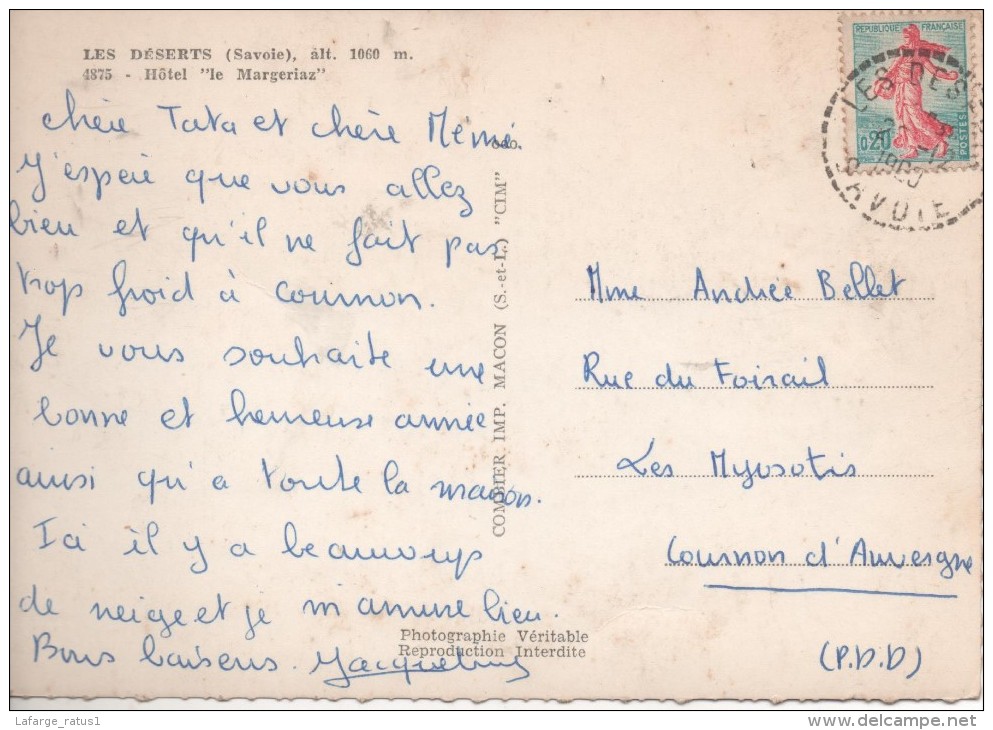 LES DÉSERTS (Savoie), alt. 1060 m.
4875 - Hôtel "le Margeriaz"
chère Tata et chère Mémé.
J'espère que vous allez
bien et qu'il ne fait pas
trop froid à Cournon.
Je vous souhaite une
bonne et heureuse année
ainsi qu'a toute la maison.
Ici il y a beaucoup
de neige et je m'amuse bien.
Bons baisers. Jacqueline
COMBIER IMP. MACON (S.-et-L.) "CIM"
Photographie Véritable
Reproduction Interdite
REPUBLIQUE FRANÇAISE
0,20
POSTES
LES DESE
1960
SAVOIE
Mme Andrée Bellet
Rue du Foirail
Les Myosotis
Cournon d'Auvergne
(P.D.D)
Lafarge_ratus1
www.delcampe.net